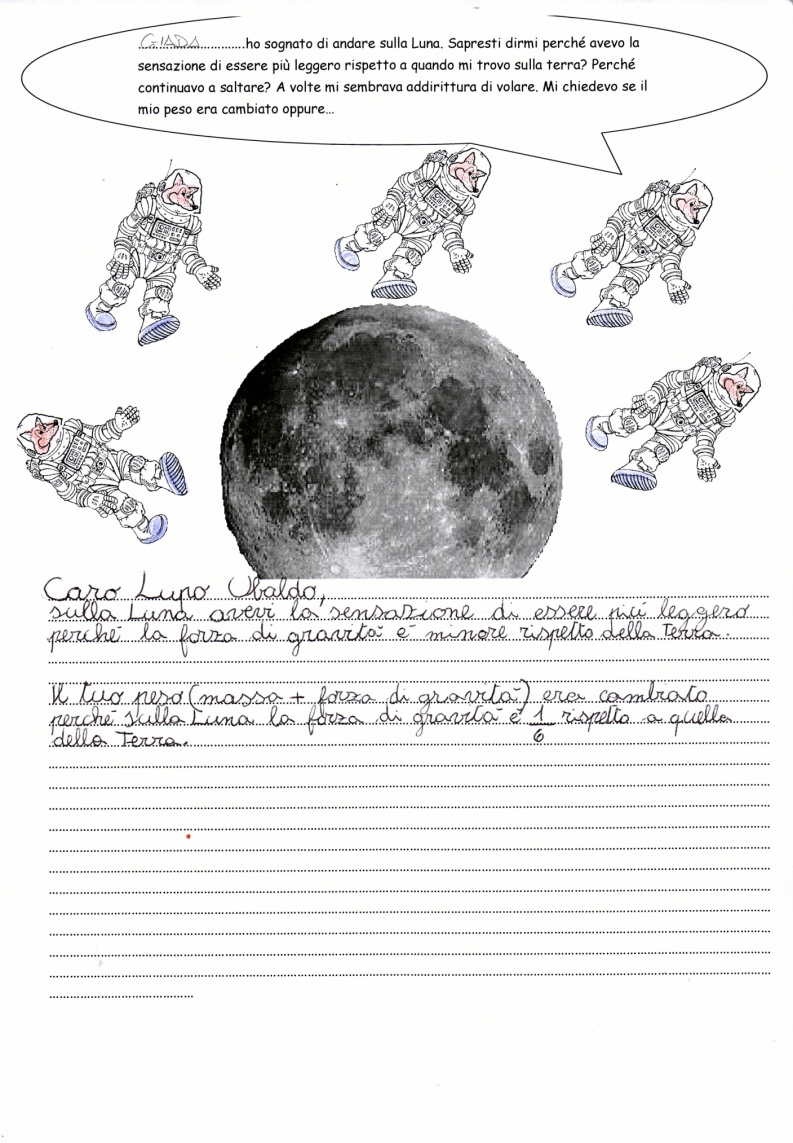 GIADA.............ho sognato di andare sulla Luna. Sapresti dirmi perché avevo la
sensazione di essere più leggero rispetto a quando mi trovo sulla terra? Perché
continuavo a saltare? A volte mi sembrava addirittura di volare. Mi chiedevo se il
mio peso era cambiato oppure...
Caro Lupo Ubaldo,
sulla Luna avevi la sensazione di essere più leggero
perché la forza di gravità è minore rispetto della Terra.
Il tuo peso (massa + forza di gravità) era cambiato
perché sulla Luna la forza di gravità è 1/6 rispetto a quella
della Terra.